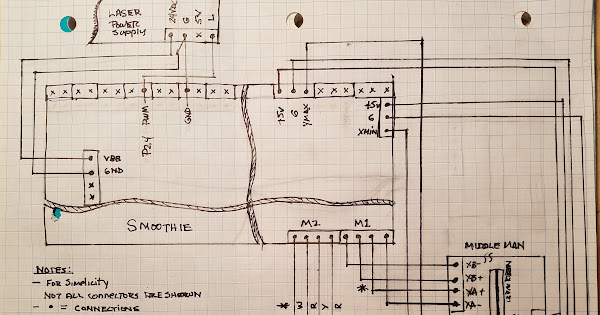 LASER
POWER
SUPPLY
24VDC
G
5V
L
X
x x x x x x x x x x
P2.4 PWM
GND
+5V
G
YMAX
+5V
G
XMIN
VBB
GND
x
x
SMOOTHIE
M2
M1
* W R Y R
*
MIDDLE MAN
J5
XB-
XB+
XA+
XA-
NOTES:
- FOR SIMPLICITY
NOT ALL CONNECTORS ARE SHOWN
- • = CONNECTIONS